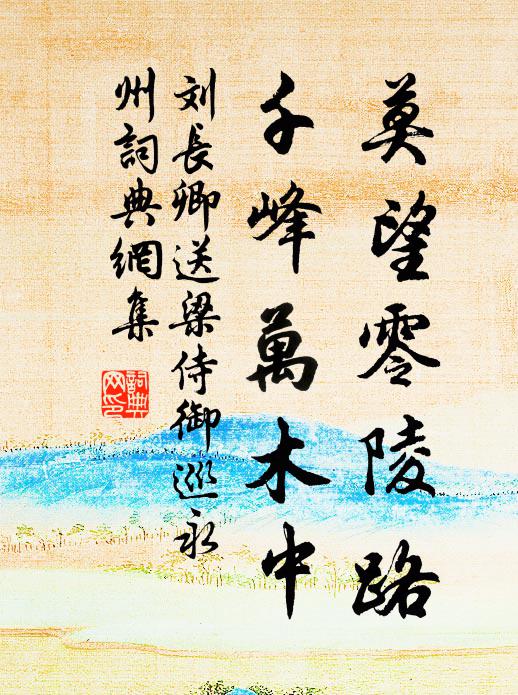 莫望零陵路
千峰萬木中
刘長卿送梁侍御巡永
州詞典網集
詞典
网印